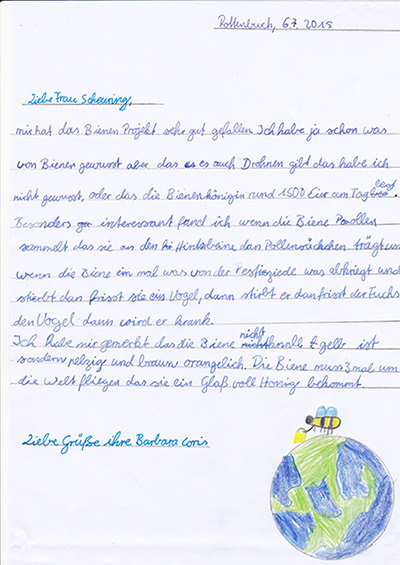 Rottenbuch, 6.7.2015
Liebe Frau Scheuring,
mir hat das Bienen Projekt sehr gut gefallen. Ich habe ja schon was
von Bienen gewusst aber das es auch Drohnen gibt das habe ich
nicht gewusst, oder das die Bienenkönigin rund 1500 Eier am Tag legt.
Besonders interessant fand ich wenn die Biene Poollen
sammelt das sie an den Hinterbeine dan Pollensäckchen trägt un
wenn die Biene ein mal was von der Pestiziede was abkriegt und
stirbt dan frisst sie ein Vogel, dann stirbt er dan frisst der Fuchs
den Vogel dann wird er krank.
Ich habe mir gemerkt das die Biene nicht gelb ist
sondern pelzig und braun orangelich. Die Biene muss 3 mal um
die Welt fliegen das sie ein Glaß voll Honig bekommt.
Liebe Grüße ihre Barbara